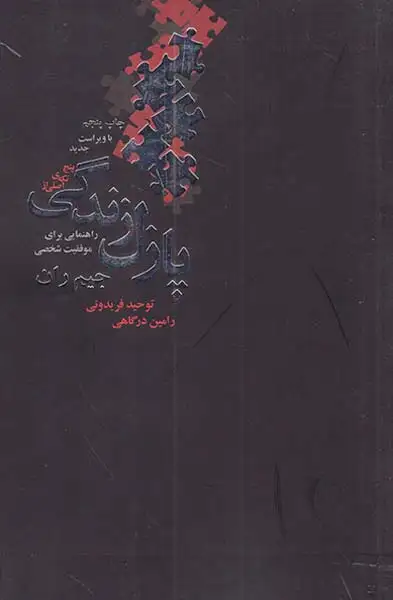 چاپ پنجم
با ویراست
جدید
پنج
اصلی از
پازل زندگی
راهنمایی برای
موفقیت شخصی
جیم ران
توحید فریدونی
رامین درگاهی